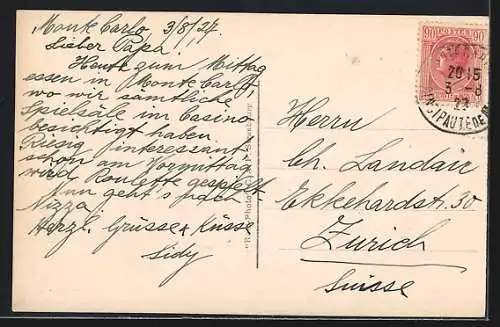 Monte Carlo, 3/8/27.
Lieber Papa!
Heute zum Mittag
essen in Monte Carlo
wo wir sämtliche
Spielsäle im Casino
besichtigt haben.
Riesig interessant
schon am Vormittag
wird Roulette gespielt.
Nun geht's nach
Nizza.
Herzl. Grüsse & Küsse
Sidy
90 POSTES 90
2015
3-8
PAUTÉ DE
Herrn
Ch. Landau
Ekkehardstr. 30
Zurich
Suisse